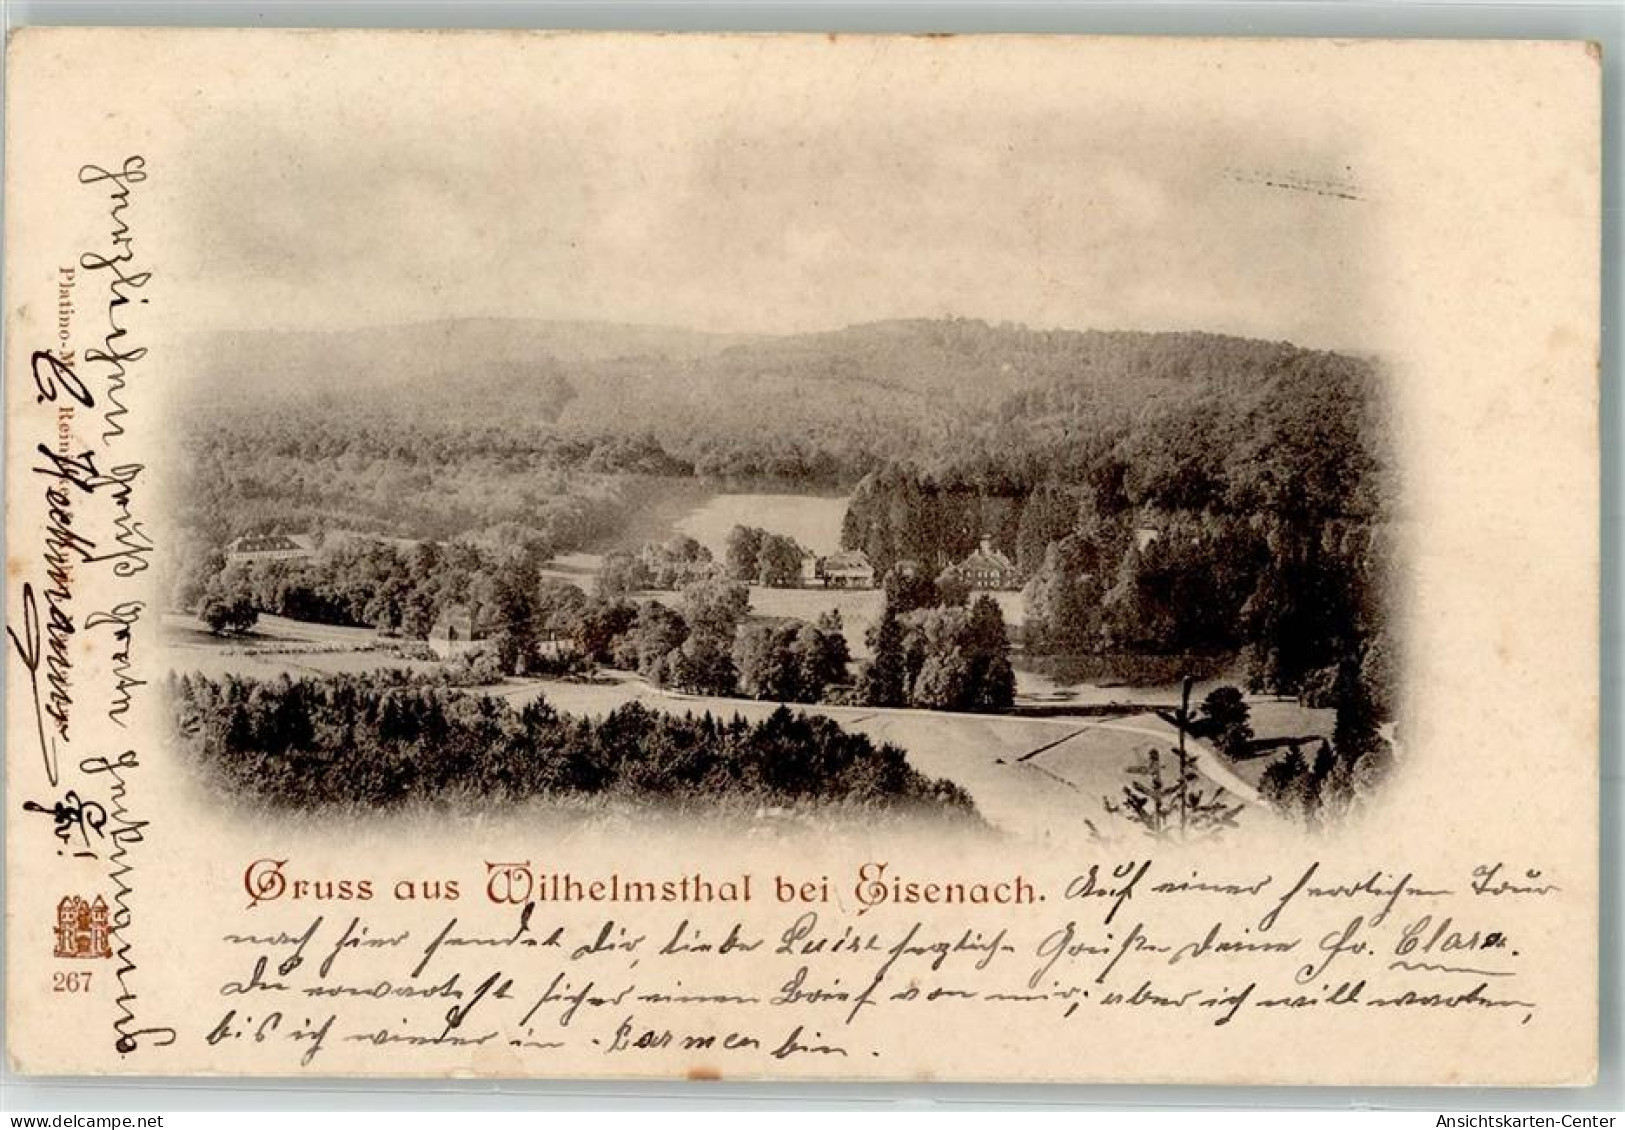 Gruss aus Wilhelmsthal bei Eisenach. Auf einer herrlichen Tour
nach hier sendet Dir, liebe Luise herzliche Grüße Deine Fr. Clara.
Du erwartest sicher einen Brief von mir; aber ich will warten,
bis ich wieder in Barmen bin.
Herzlichen Gruß
Platino-
Rein
267
Ansichtskarten-Center